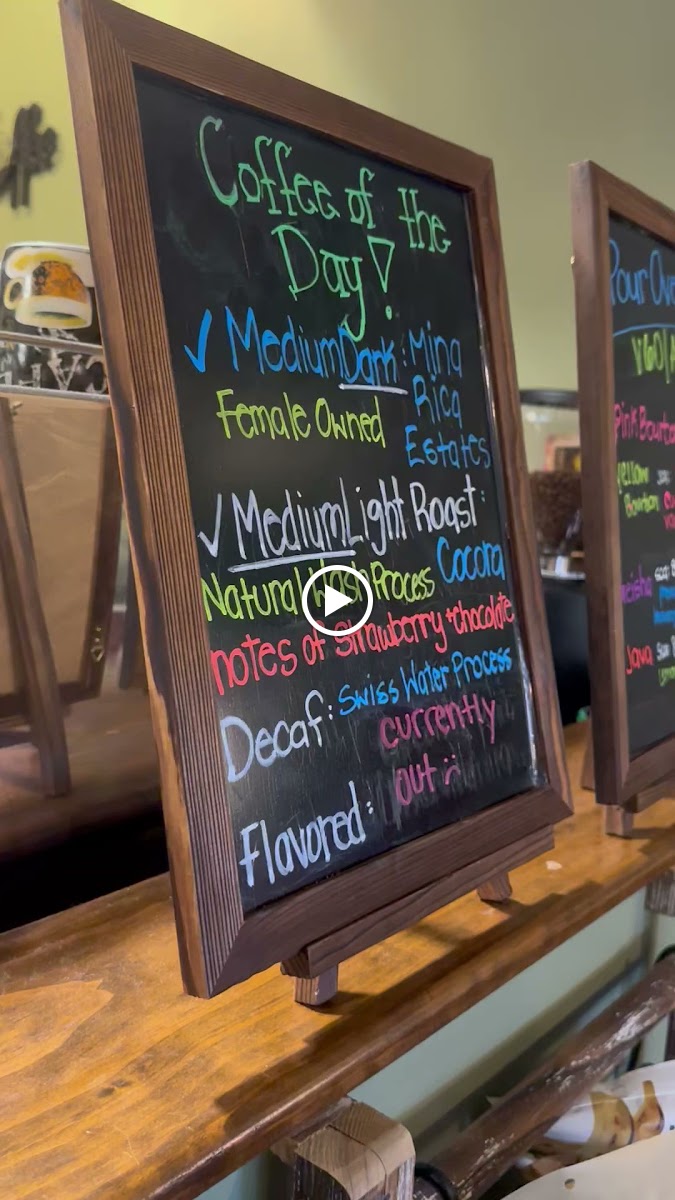 Coffee of the
Day!
✓ MediumDark: Mina
Rica
Estates
Female Owned
✓ MediumLight Roast:
Cocora
Natural Wash Process
notes of strawberry + chocolate
Decaf: Swiss Water Process
currently
out :(
Flavored:
Pour
V60/
Pink
Yellow
Bourbon
Java